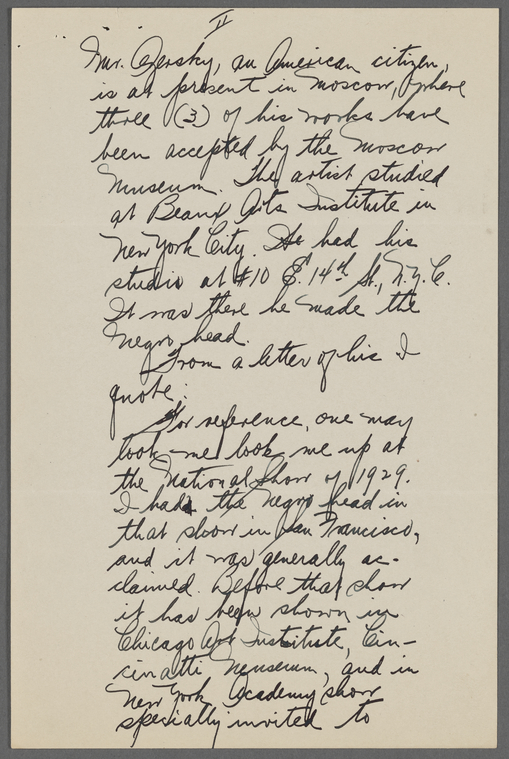 II
Mr. Azersky, an American citizen,
is at present in Moscow, where
three (3) of his works have
been accepted by the Moscow
Museum. The artist studied
at Beaux Arts Institute in
New York City. He had his
studio at #10 E. 14th St., N.Y.C.
It was there he made the
Negro head.
From a letter of his I
quote:
For reference, one may
look me look me up at
the National Show of 1929.
I had the Negro head in
that show in San Francisco,
and it was generally ac-
claimed. Before that show
it has been shown in
Chicago Art Institute, Cin-
cinatti Meuseum, and in
New York Academy show
specially invited to